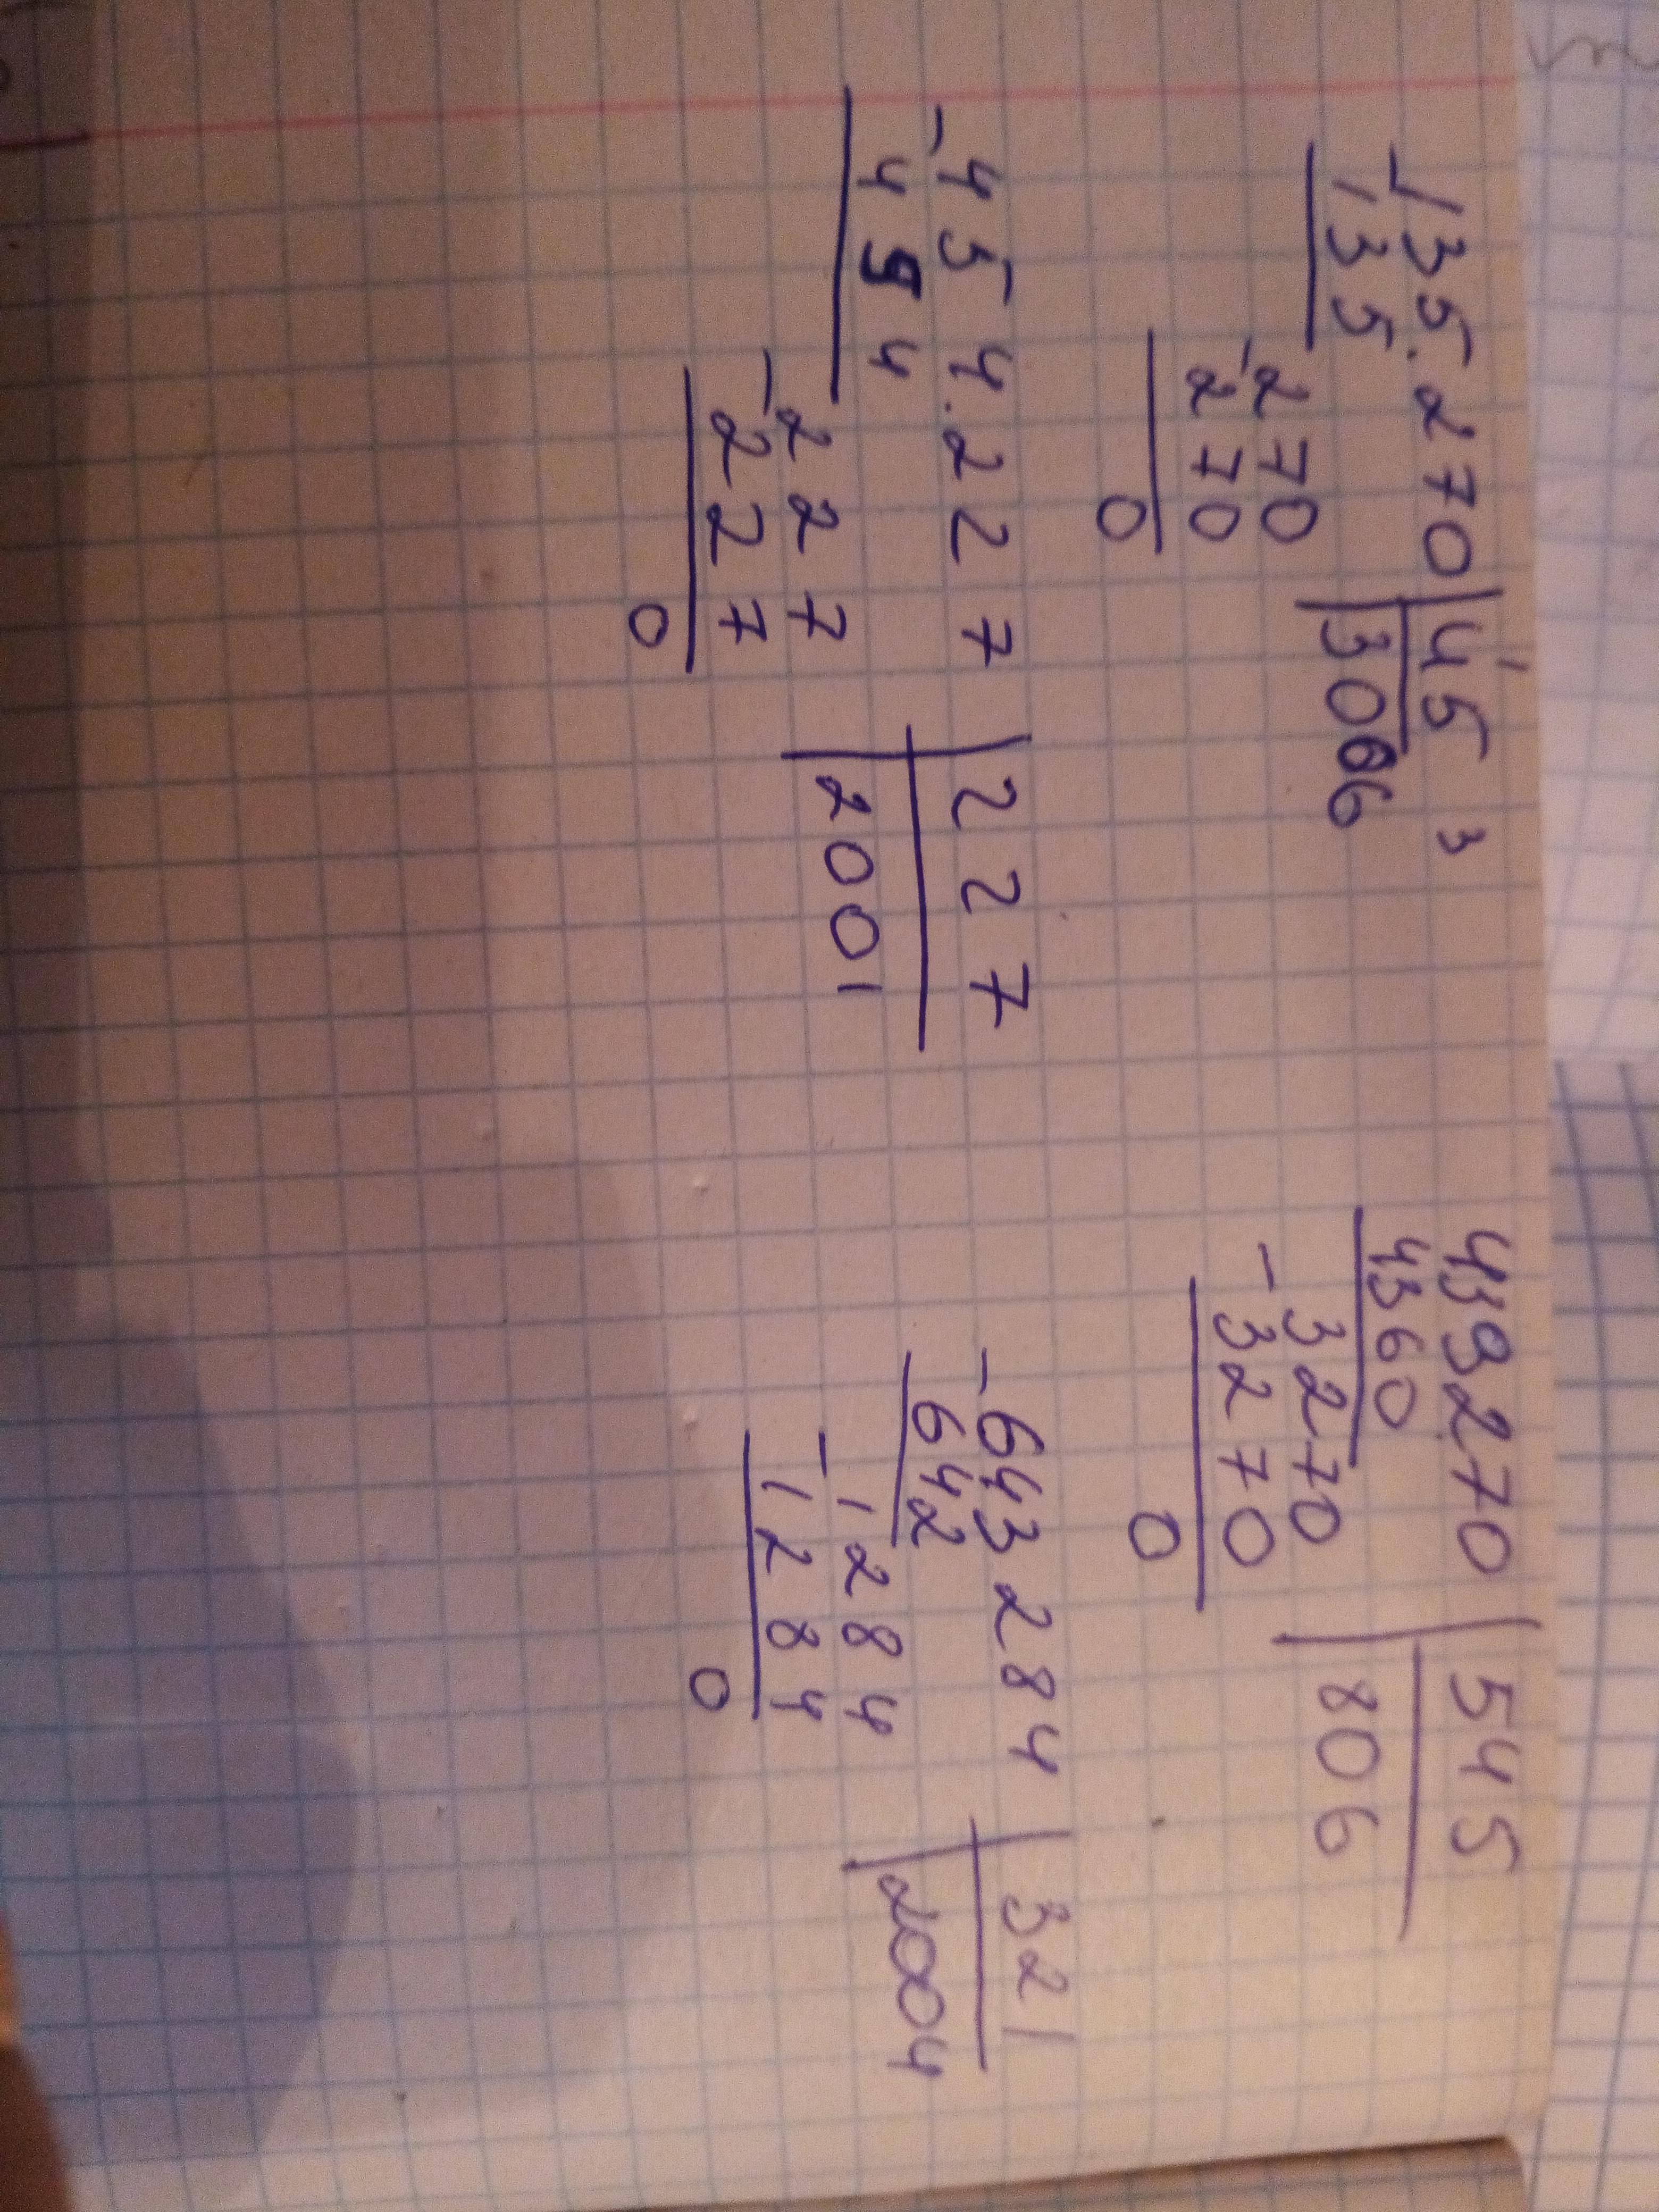 -135.270 | 45
135 | 3006
-270
270
0
-454.227 | 227
454 | 2001
-227
227
0
439270 | 545
4360 | 806
-3270
3270
0
-643284 | 321
642 | 2004
-1284
1284
0